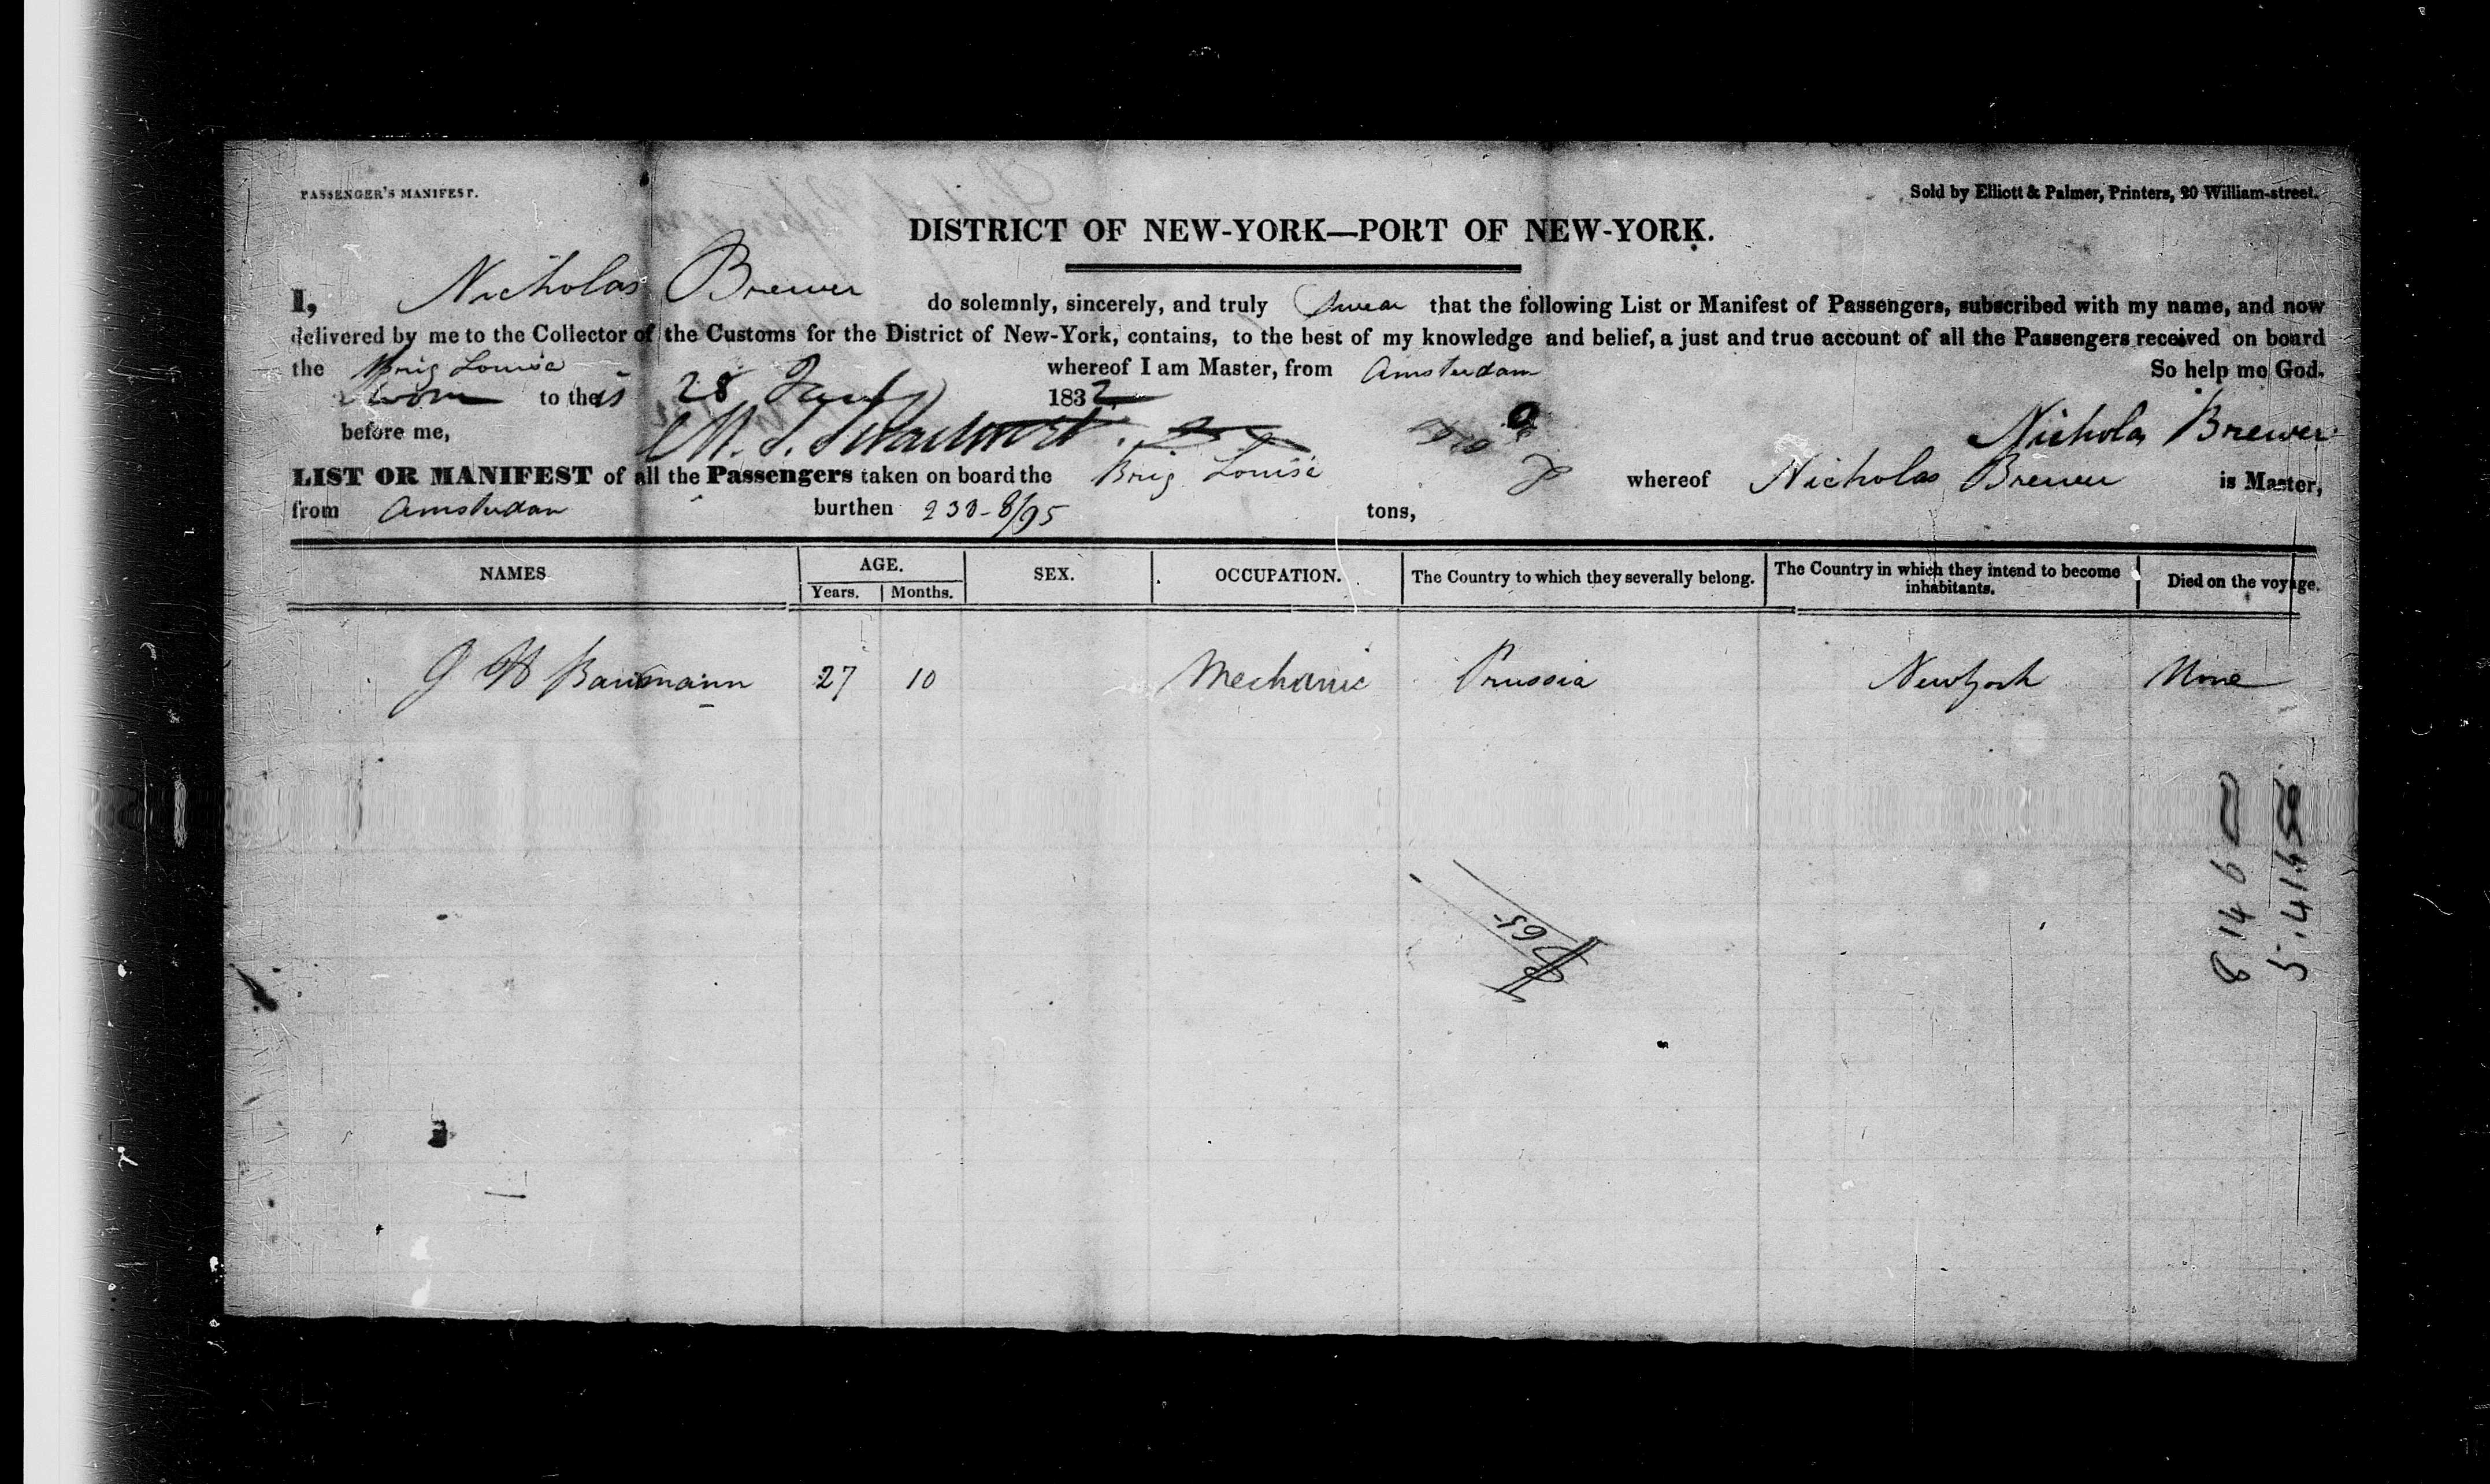 PASSENGER'S MANIFEST.
Sold by Elliott & Palmer, Printers, 20 William-street.
DISTRICT OF NEW-YORK—PORT OF NEW-YORK.
I, Nicholas Brewer do solemnly, sincerely, and truly Swear that the following List or Manifest of Passengers, subscribed with my name, and now
delivered by me to the Collector of the Customs for the District of New-York, contains, to the best of my knowledge and belief, a just and true account of all the Passengers received on board
the Brig Louisa whereof I am Master, from Amsterdam So help me God.
Sworn to the is 28 1832
before me, Nicholas Brewer
LIST OR MANIFEST of all the Passengers taken on board the Brig Louisa whereof Nicholas Brewer is Master,
from Amsterdam burthen tons,
NAMES AGE. SEX. OCCUPATION. The Country to which they severally belong. The Country in which they intend to become inhabitants. Died on the voyage.
Years. Months.
27 10 Mechanic Prussia New York None